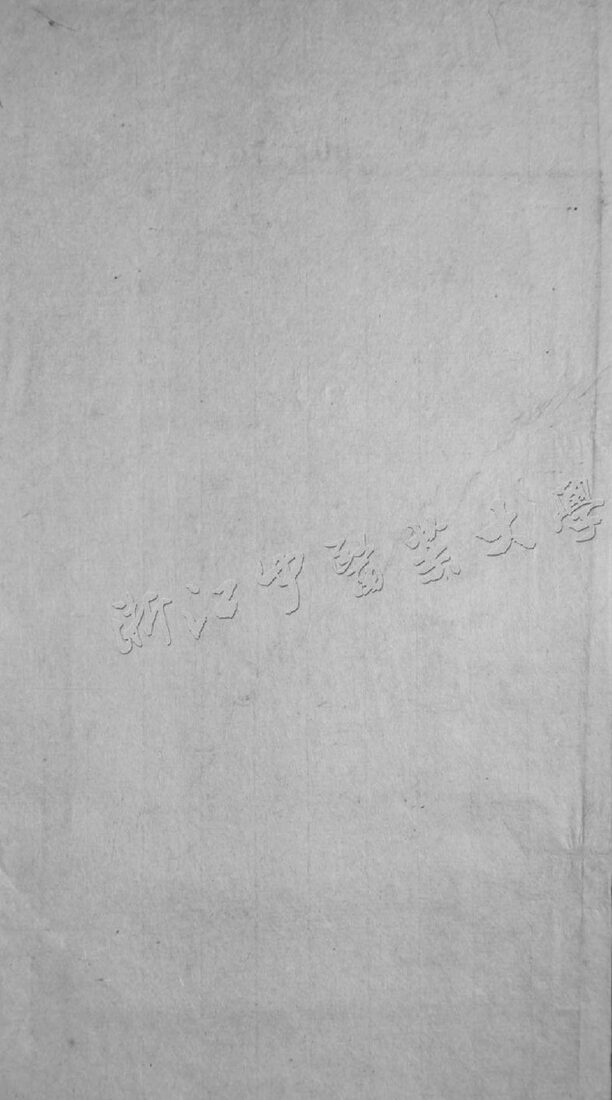 浙江中醫藥大學